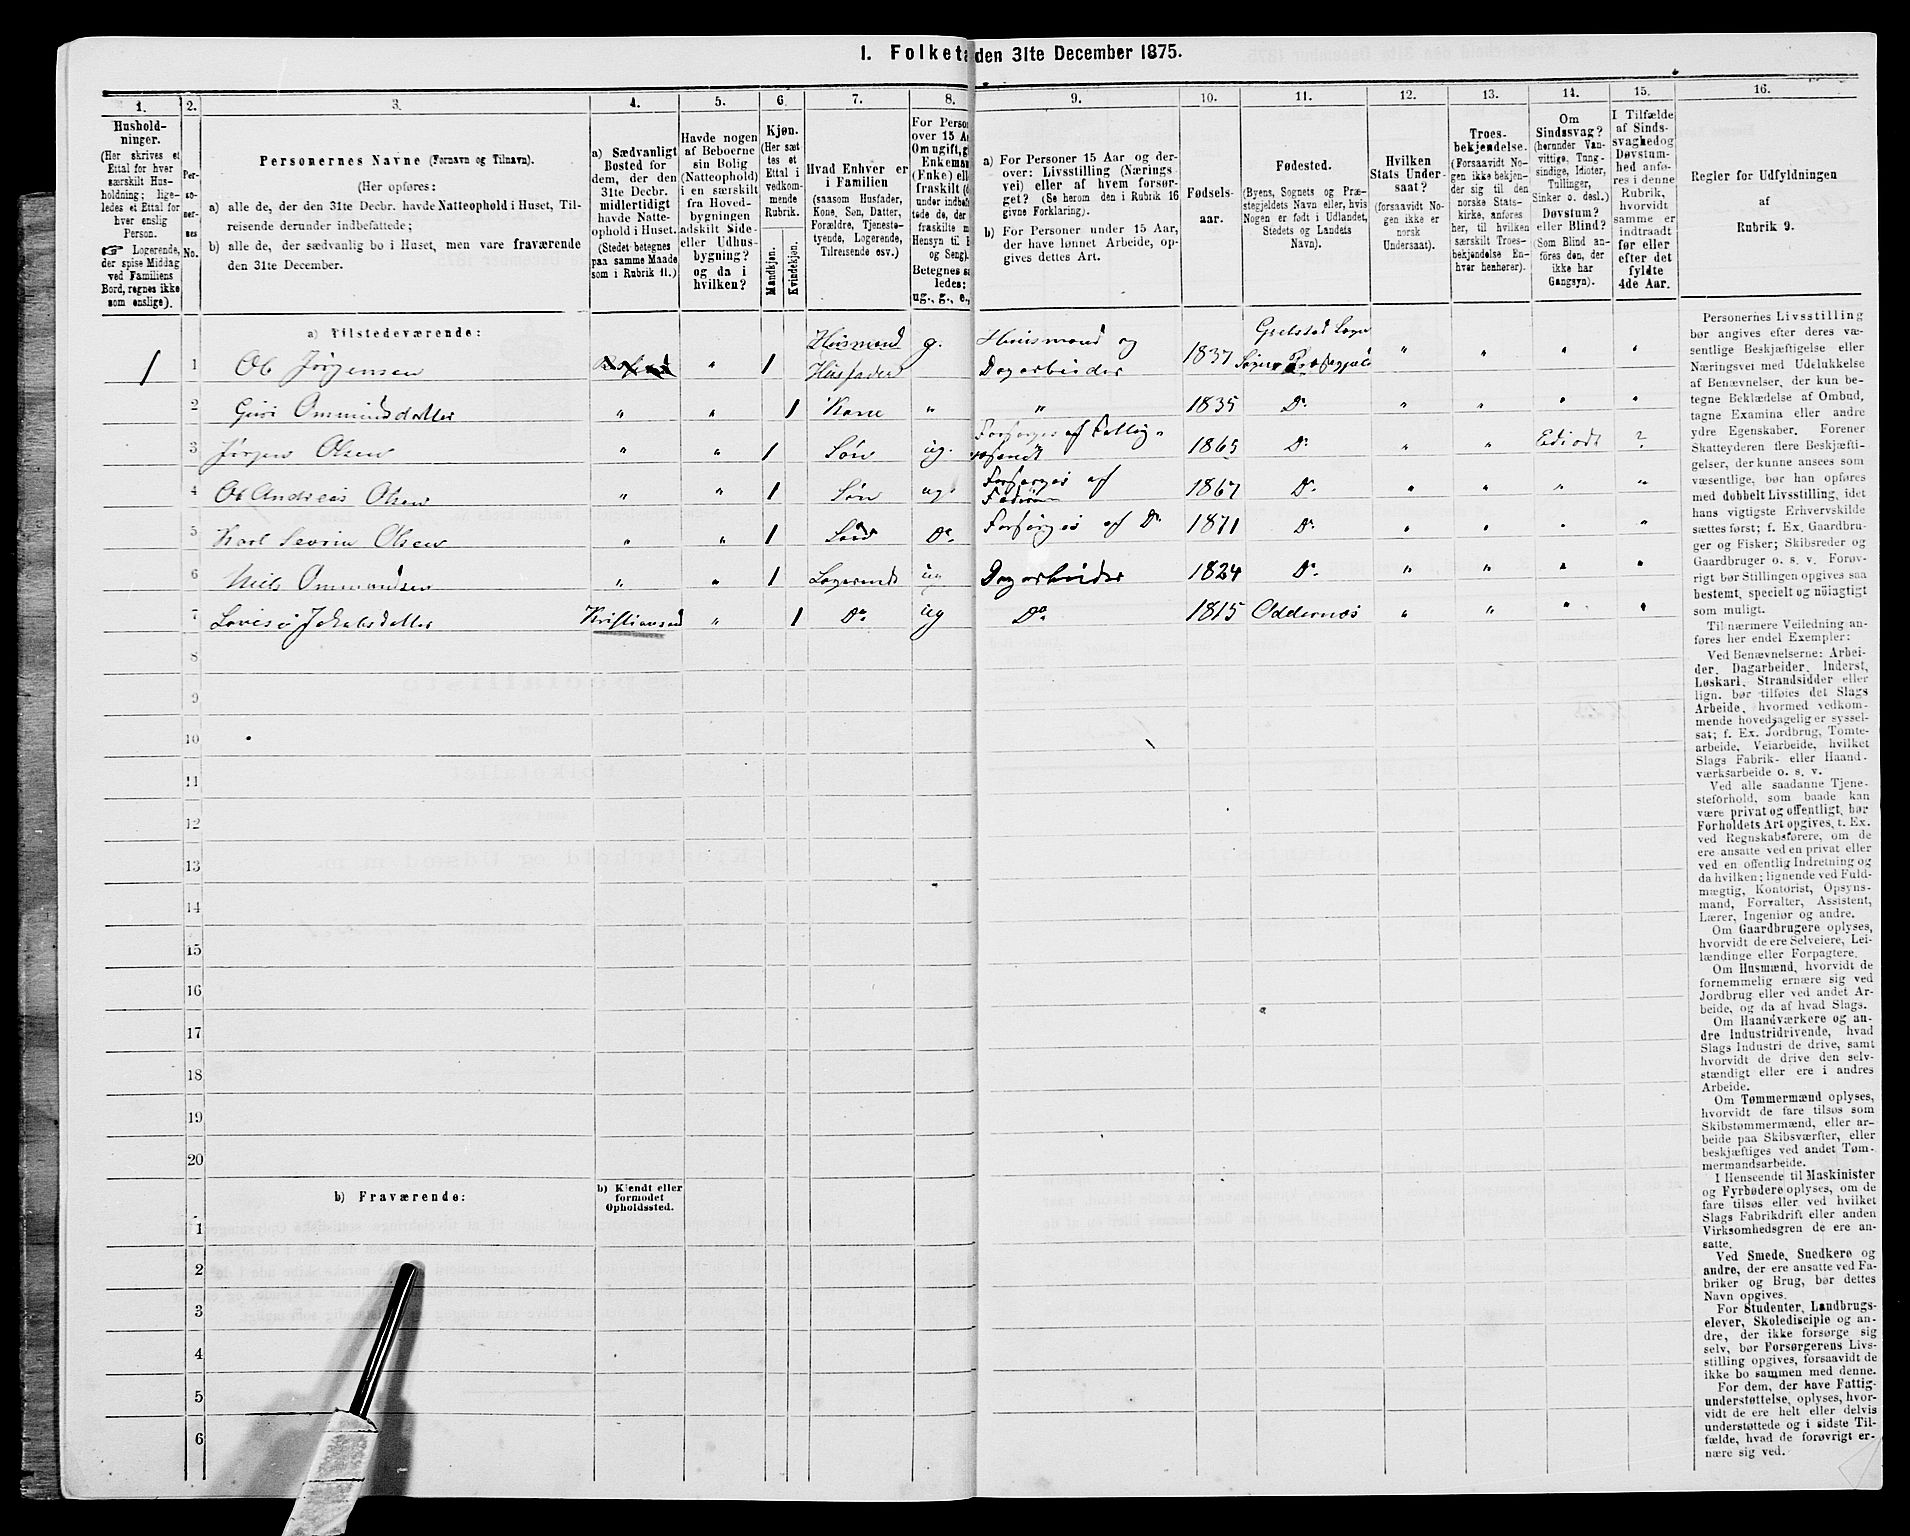 1. Folketæ den 31te December 1875.
1. 2. 3. 4. 5. 6. 7. 8. 9. 10. 11. 12. 13. 14. 15. 16.
Hushold-
ninger.
(Her skrives et
Ettal for hver
særskilt Hus-
holdning; lige-
ledes et Ettal for
hver enslig
Person.
☞ Logerende,
der spise Middag
ved Familiens
Bord, regnes ikke
som enslige).
Per-
so-
ner-
nes
No.
Personernes Navne (Fornavn og Tilnavn).
(Her opføres:
a) alle de, der den 31te Decbr. havde Natteophold i Huset, Til-
reisende derunder indbefattede;
b) alle de, der sædvanlig bo i Huset, men vare fraværende
den 31te December.
a) Sædvanligt
Bosted for
dem, der den
31te Decbr.
midlertidigt
havde Natte-
ophold i Huset.
(Stedet betegnes
paa samme Maade
som i Rubrik 11.)
Havde nogen
af Beboerne
sin Bolig
(Natteophold)
i en særskilt
fra Hoved-
bygningen
adskilt Side-
eller Udhus-
bygning?
og da i
hvilken?
Kjøn.
(Her sæt
tes et
Ettal i
vedkom-
mende
Rubrik.
Mandkjøn.
Kvindekjøn.
Hvad Enhver er
i Familien
(saasom Husfader,
Kone, Søn, Datter,
Forældre, Tjeneste-
tyende, Logerende,
Tilreisende osv.)
For Perso
over 15 A
Om ugift, g
Enkeman
(Enke) ell
fraskilt (d
under indbe
tede de, der
fraskilte m
Hensyn til B
og Seng).
Betegnes sa
ledes:
ug., g., e.,
a) For Personer 15 Aar og der-
over: Livsstilling (Nærings
vei) eller af hvem forsør-
get? (Se herom den i Rubrik 16
givne Forklaring).
b) For Personer under 15 Aar,
der have lønnet Arbeide, op-
gives dettes Art.
Fødsels-
aar.
Fødested.
(Byens, Sognets og Præ-
stegjeldets Navn eller, hvis
Nogen er født i Udlandet,
Stedets og Landets
Navn).
Hvilken
Stats Under-
saat?
(forsaavidt No-
gen ikke er
norsk
Undersaat).
Troes-
bekjendelse.
(Forsaavidt No-
gen ikke bekjen-
der sig til den
norske Stats-
kirke, anføres
her, til hvilken
særskilt Troes-
bekjendelse En-
hver henhører).
Om
Sindssvag?
(herunder Van-
vittige, Tung-
sindige, Idioter,
Tullinger,
Sinker o. desl.)
Døvstum?
eller Blind?
(Som Blind an-
føres den, der
ikke har
Gangsyn).
I Tilfælde
af Sinds-
svaghed og
Døvstum-
hed anfø-
res i denne
Rubrik,
hvorvidt
samme er
indtraadt
før eller
efter det
fyldte
4de Aar.
Regler for Udfyldningen
af
Rubrik 9.
a) Tilstedeværende:
1 1 Ole Jørgensen " 1 Huusmand Husfader g. Huusmand og Dagarbeider 1837 " " " "
2 Guri Ommundsdatter " " 1 Kone " " 1835 Do " " " "
3 Jørgen Olsen " " 1 Søn ug. Forsørges af 1865 Do " " Idiodt ?
4 Ole Andreas Olsen " " 1 Søn ug Forsørges af Faderen 1867 Do " " " "
5 Karl Severin Olsen " " 1 Søn Do. Forsørges af Do 1871 Do " " " "
6 Niels Ommundsen " " 1 Logerende ug Dagarbeider 1824 Do " " " "
7 Lovise Jakobsdatter Kristiansand " 1 Do ug Do 1815 Oddernæs " " " "
8
9
10
11
12
13
14
15
16
17
18
19
20
b) Fraværende:
b) Kjendt eller
formodet
Opholdssted.
1
2
3
4
5
6
Personernes Livsstilling
bør angives efter deres væ-
sentlige Beskjæftigelse eller
Næringsvei med Udelukkelse
af Benævnelser, der kun be-
tegne Beklædelse af Ombud,
tagne Examina eller andre
ydre Egenskaber. Forener
Skatteyderen flere Beskjæfti-
gelser, der kunne ansees som
væsentlige, bør han opføres
med dobbelt Livsstilling, idet
hans vigtigste Erhvervskilde
sættes først; f. Ex. Gaardbru-
ger og Fisker; Skibsreder og
Gaardbruger o. s. v. Forøv-
rigt bør Stillingen opgives saa
bestemt, specielt og nöiagtigt
som muligt.
Til nærmere Veiledning an-
føres her endel Exempler:
Ved Benævnelserne: Arbei-
der, Dagarbeider, Inderst,
Løskarl, Strandsidder eller
lign. bør tilføies det Slags
Arbeide, hvormed vedkom-
mende hovedsagelig er syssel-
sat; f. Ex. Jordbrug, Tomte-
arbeide, Veiarbeide, hvilket
Slags Fabrik- eller Haand-
værksarbeide o. s. v.
Ved alle saadanne Tjene-
steforhold, som baade kan
være privat og offentligt, bør
Forholdets Art opgives, t. Ex.
ved Regnskabsførere, om de
ere ansatte ved en privat eller
ved en offentlig Indretning og
da hvilken; lignende ved Fuld-
mægtig, Kontorist, Opsyns-
mand, Forvalter, Assistent,
Lærer, Ingeniør og andre.
Om Gaardbrugere oplyses,
hvorvidt de ere Selveiere, Lei-
lændinge eller Forpagtere.
Om Husmænd, hvorvidt de
fornemmelig ernære sig ved
Jordbrug eller ved andet Ar-
beide, og da af hvad Slags.
Om Haandværkere og an-
dre Industridrivende, hvad
Slags Industri de drive, samt
hvorvidt de drive den selv-
stændigt eller ere i andres
Arbeide.
Om Tømmermænd oplyses,
hvorvidt de fare tilsøs som
Skibstømmermænd, eller ar-
beide paa Skibsværfter, eller
beskjæftiges ved andet Tøm-
mermandsarbeide.
I Henseende til Maskinister
og Fyrbødere oplyses, om de
fare tilsøs eller ved hvilket
Slags Fabrikdrift eller anden
Virksomhedsgren de ere an-
satte.
Ved Smede, Snedkere og
andre, der ere ansatte ved Fa-
briker og Brug, bør dettes
Navn opgives.
For Studenter, Landbrugs-
elever, Skoledisciple og an-
dre, der ikke forsørge sig
selv, bør Forsørgerens Livs-
stilling opgives, forsaavidt de
ikke bo sammen med denne.
For dem, der have Fattig-
understøttelse, oplyses, hvor-
vidt de ere helt eller delvis
understøttede og i sidste Til-
fælde, hvad de forøvrigt er-
nære sig ved.